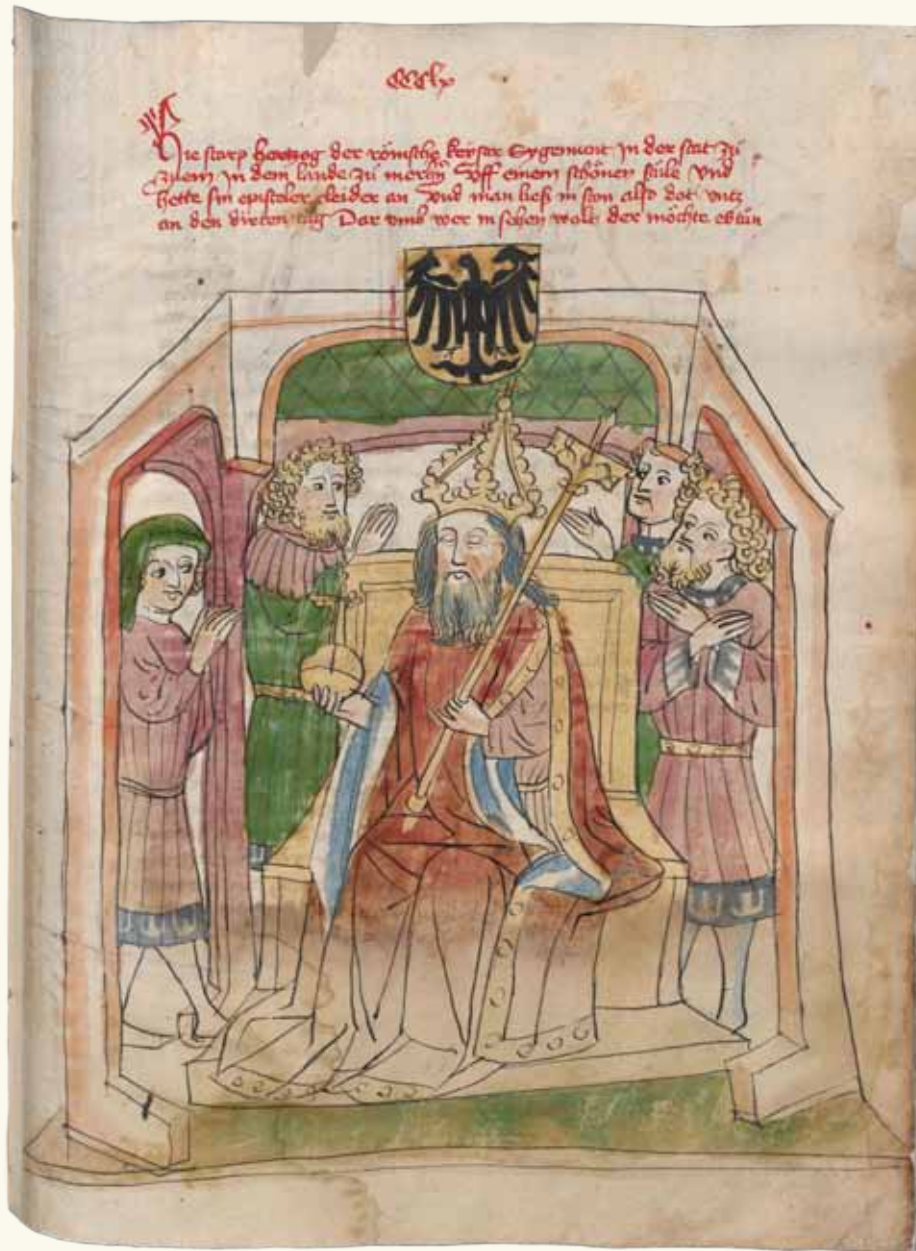 CCClx
Hie starp herczog der römische keyser Sygemont jn der stat zu
znem jn dem lande zu merhen Vff einem schönen sule Vnd
hette sin epistoler cleider an Vnd man ließ in ston also dot vntz
an den dirten tag Dar vmb wer in sehen wolt der möchte es tün